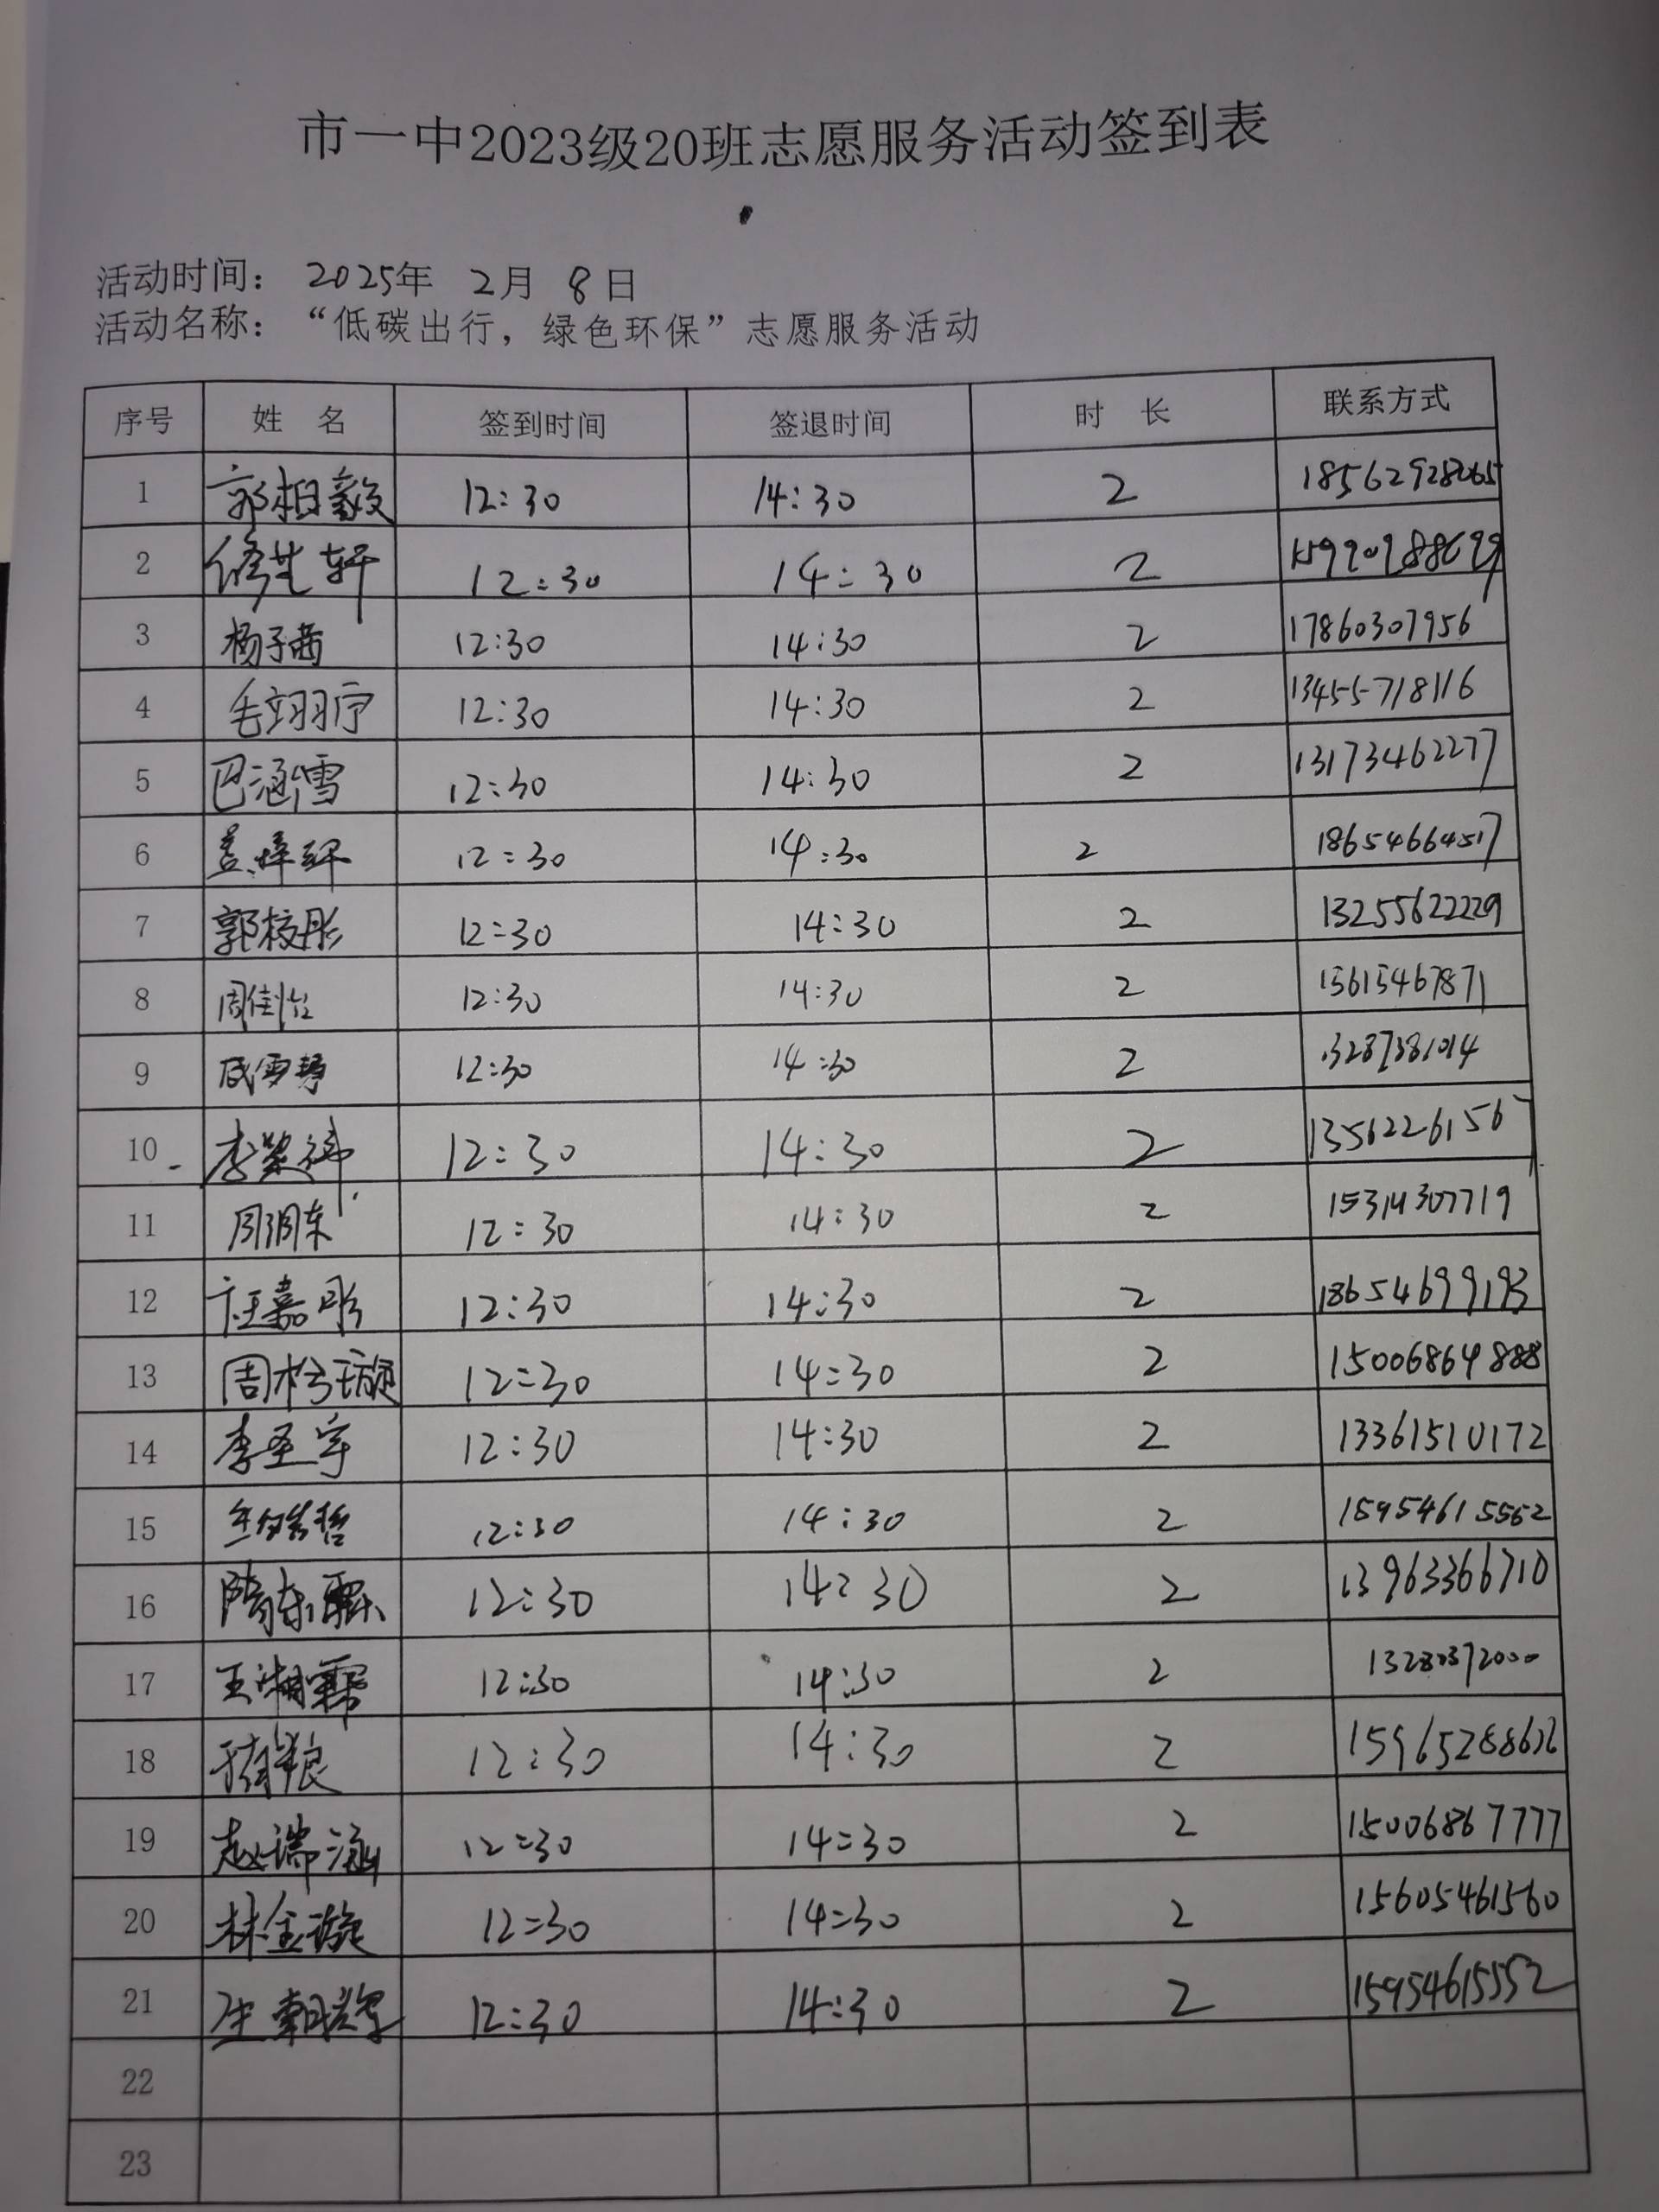 市一中2023级20班志愿服务活动签到表
活动时间： 2025年 2月 8日
活动名称：“低碳出行，绿色环保”志愿服务活动
序号 姓 名 签到时间 签退时间 时 长 联系方式
1 郭柏毅 12:30 14:30 2
2 修芷轩 12:30 14:30 2
3 杨子茜 12:30 14:30 2 17860307956
4 毛翊宁 12:30 14:30 2 13455718116
5 巴涵雪 12:30 14:30 2 13173462277
6 12:30 14:30 2 18654664517
7 郭校彤 12:30 14:30 2 13255622229
8 周佳怡 12:30 14:30 2 15615467871
9 12:30 14:30 2
10 12:30 14:30 2 13562261567
11 周润东 12:30 14:30 2 15314307719
12 汪嘉彤 12:30 14:30 2 18654699193
13 12:30 14:30 2 15006864888
14 李圣宇 12:30 14:30 2 13361510172
15 12:30 14:30 2 15954615562
16 12:30 14:30 2 13963366710
17 12:30 14:30 2
18 12:30 14:30 2
19 赵瑞涵 12:30 14:30 2 15006867777
20 林金璇 12:30 14:30 2 15605461560
21 12:30 14:30 2 15954615552
22
23